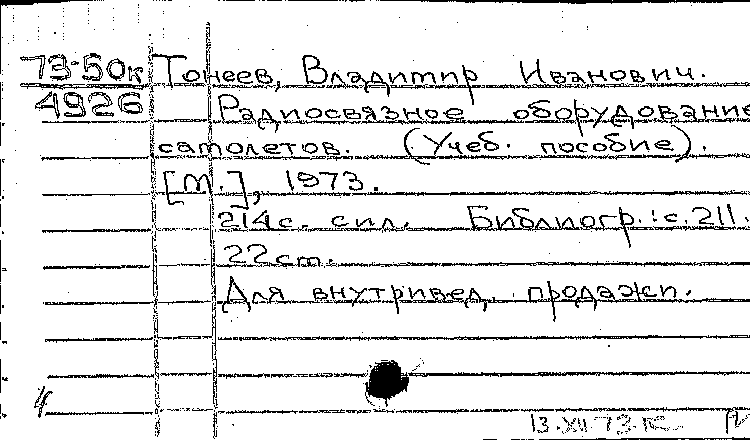 73-50к Тонеев, Владимир Иванович.
4926 Радиосвязное оборудование
самолетов. (Учеб. пособие).
[М.], 1973.
214 с. с ил. Библиогр.: с. 211.
22 см.
Для внутривед. продажи.
4
13.XII.73.